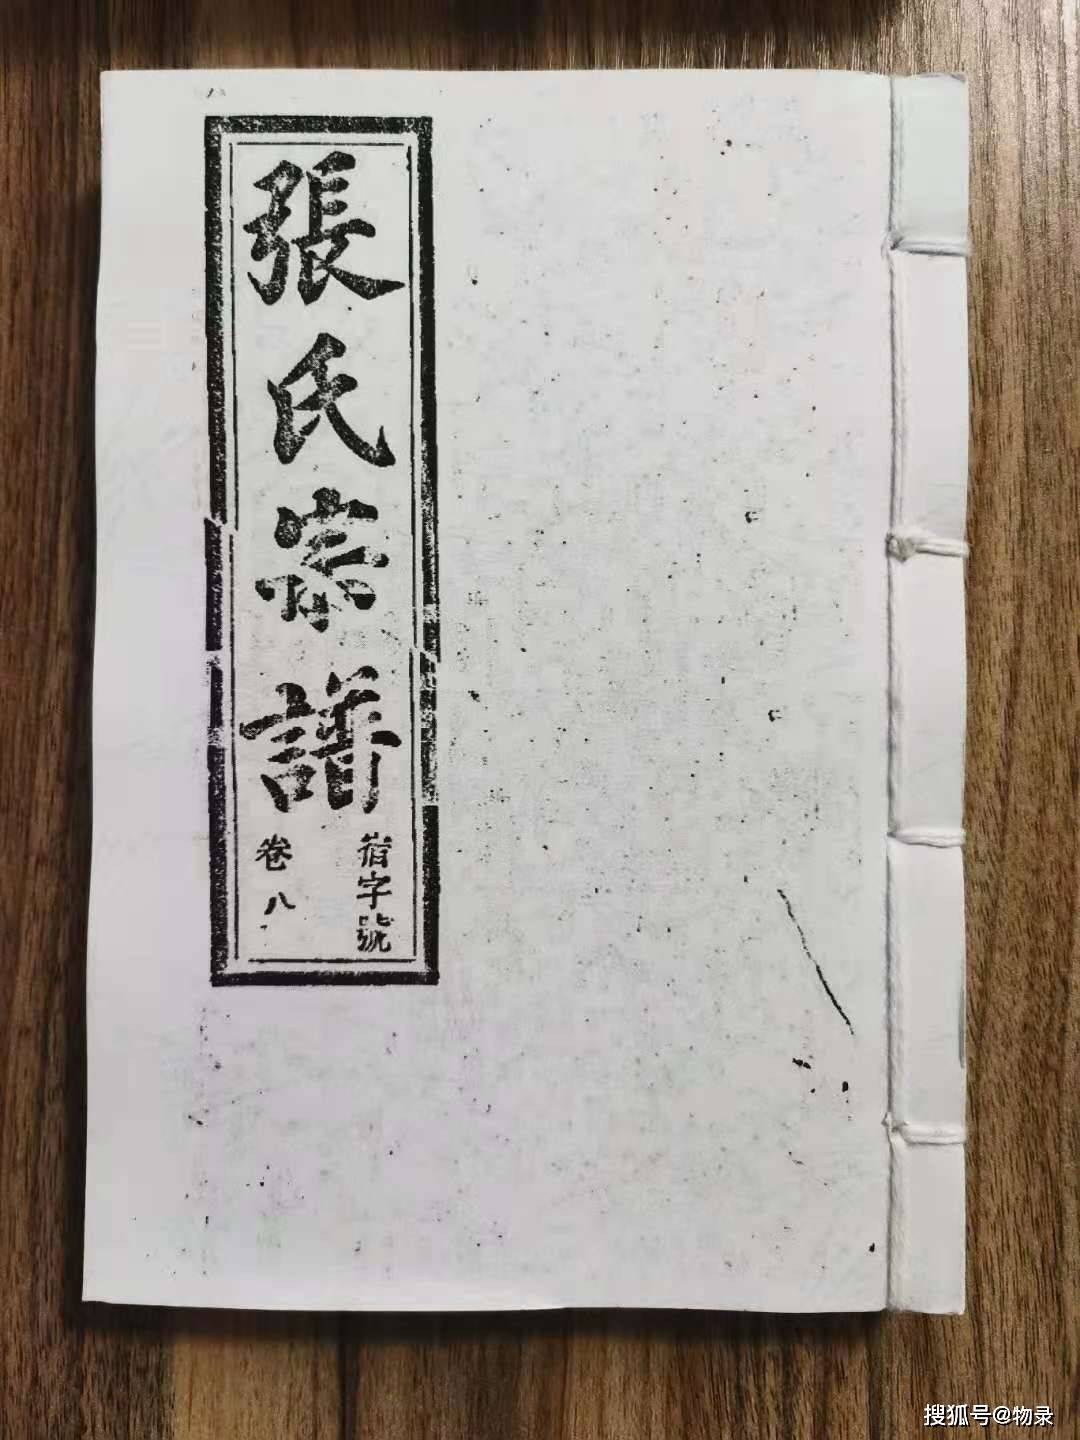 張氏宗譜
宿字號
卷八
搜狐号@物录